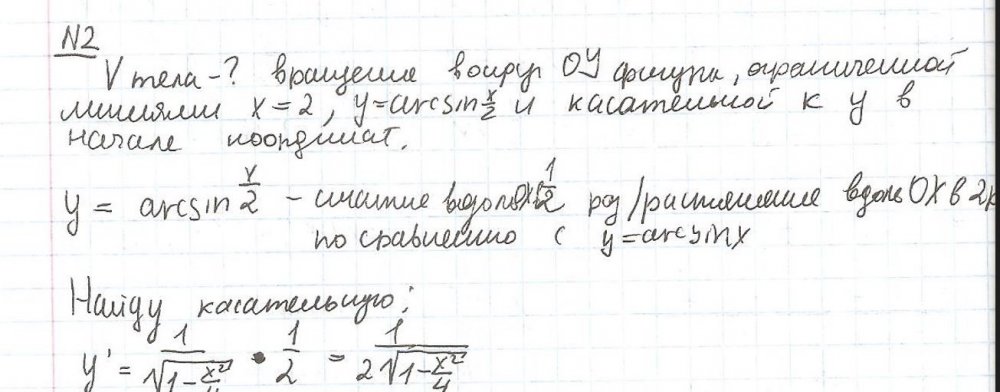 N2
V тела - ? вращения вокруг OY фигуры, ограниченной
линиями x = 2, y = arcsin x/2 и касательной к y в
начале координат.
y = arcsin x/2 - сжатие вдоль OX в 1/2 раз/растяжение вдоль OX в 2
по сравнению с y = arcsin x
Найду касательную:
y' = 1/√(1 - x²/4) · 1/2 = 1/(2√(1 - x²/4))